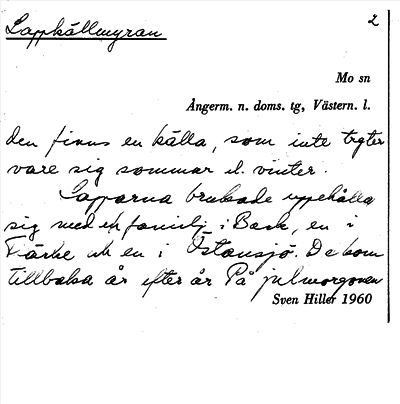 Lappkällmyran 2
Mo sn
Ångerm. n. doms. tg, Västern. l.
den finns en källa, som inte tryter
vare sig sommar el. vinter.
Lapparna brukade uppehålla
sig med en familj i Back, en i
Tärke och en i Östansjö. De kom
tillbaka år efter år På julmorgonen
Sven Hiller 1960